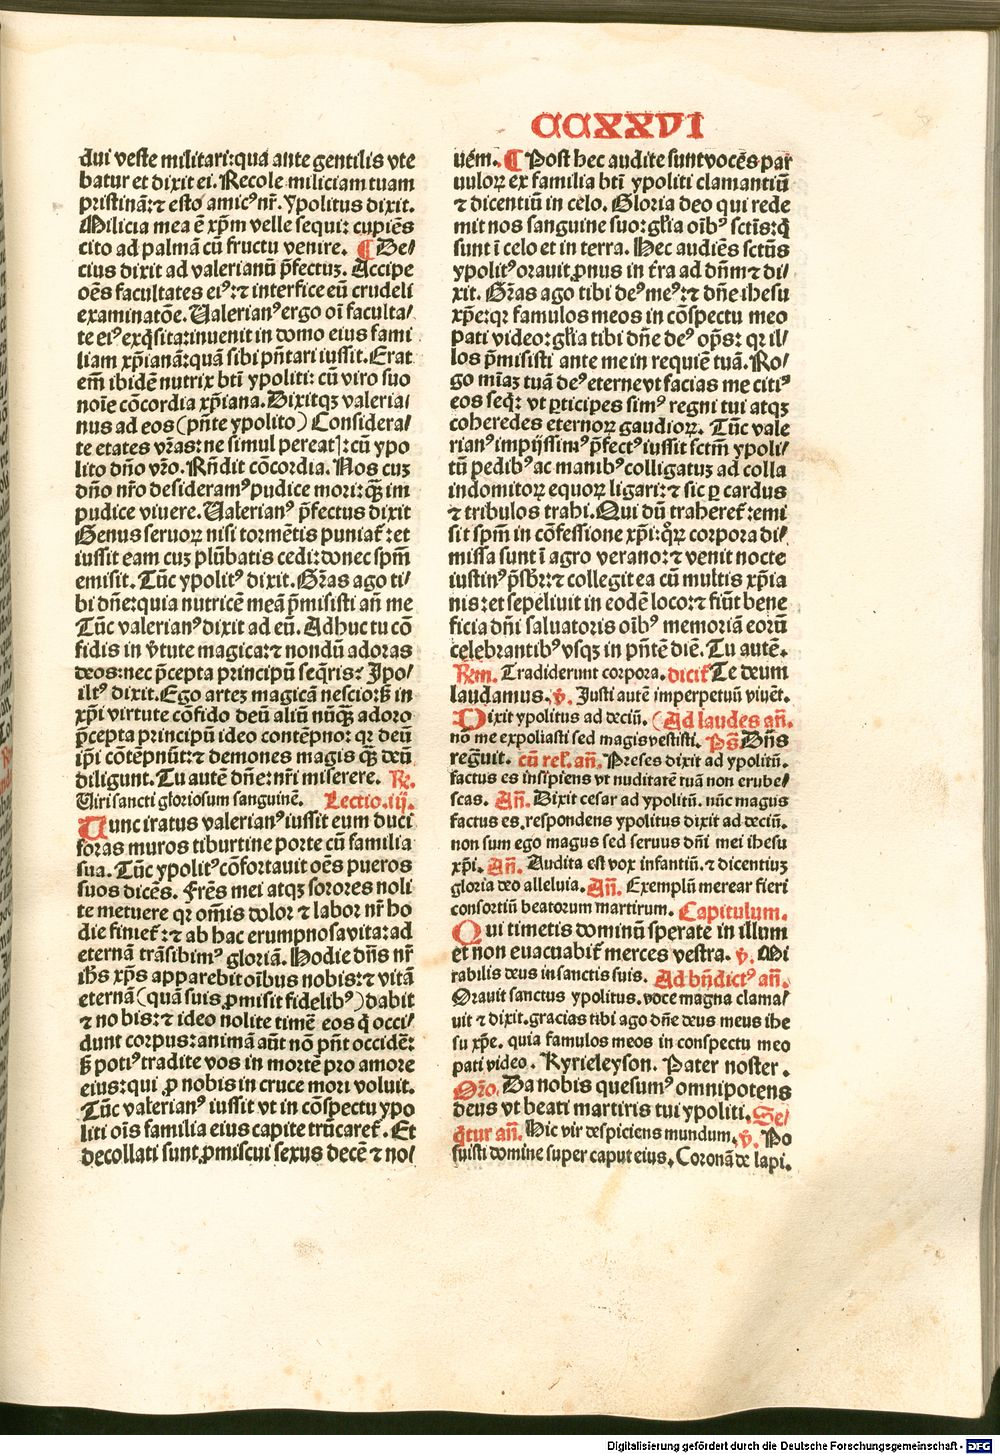 CCXXVI
dui veste militari:quā ante gentilis vte
batur et dixit ei. Recole miliciam tuam
pristinā:⁊ esto amicꝰ nr̄. Ypolitus dixit.
Milicia mea ē xp̄m velle sequi: cupiēs
cito ad palmā cū fructu venire. ¶ De⸗
cius dixit ad valerianū p̄fectuꝫ. Accipe
oēs facultates eiꝰ:⁊ interfice eū crudeli
examinatōe. Ualerianꝰ ergo oī faculta⸗
te eiꝰ exq̄sita:inuenit in domo eius fami
liam xp̄ianā:quā sibi pn̄tari iussit. Erat
em̄ ibidē nutrix bt̄i ypoliti: cū viro suo
noīe cōcordia xp̄iana. Dixitqꝫ valeria⸗
nus ad eos (pn̄te ypolito) Considera⸗
te etates vr̄as: ne simul pereat]: cū ypo
lito dn̄o vr̄o. Rn̄dit cōcordia. Nos cuꝫ
dn̄o nr̄o desideramꝰ pudice mori: qꝫ̄ im
pudice viuere. Ualerianꝰ p̄fectus dixit
Genus seruoꝝ nisi tormētis puniat̄: et
iussit eam cuꝫ plūbatis cedi: donec sp̄m
emisit. Tūc ypolitꝰ dixit. Gr̄as ago ti⸗
bi dn̄e: quia nutricē meā p̄misisti an̄ me
Tūc valerianꝰ dixit ad eū. Adhuc tu cō
fidis in v̄tute magica: ⁊ nondū adoras
deos: nec p̄cepta principū seq̄ris? Ipo⸗
litꝰ dixit. Ego arteꝫ magicā nescio: sꝫ in
xp̄i virtute cōfido deū aliū nūqꝫ̄ adoro
p̄cepta principū ideo contēpno: qr deū
ip̄i cōtēpnūt: ⁊ demones magis qꝫ̄ deū
diligunt. Tu autē dn̄e: nr̄i miserere. ℟.
Uiri sancti gloriosum sanguinē. Lectio.iij.
Tunc iratus valerianꝰ iussit eum duci
foras muros tiburtine porte cū familia
sua. Tūc ypolitꝰ cōfortauit oēs pueros
suos dicēs. Fr̄es mei atqꝫ sorores noli
te metuere qr om̄is dolor ⁊ labor nr̄ ho
die finiet̄: ⁊ ab hac erumpnosa vita: ad
eternā trāsibimꝰ gloriā. Hodie dn̄s nr̄
ih̄s xp̄s apparebit oībus nobis: ⁊ vitā
eternā (quā suis ꝓmisit fidelibꝰ) dabit
⁊ nobis: ⁊ ideo nolite timē eos q̄ occi⸗
dunt corpus: animā aūt nō pn̄t occidē:
sꝫ potiꝰ tradite vos in mortē pro amore
eius: qui ꝓ nobis in cruce mori voluit.
Tūc valerianꝰ iussit vt in cōspectu ypo
liti oīs familia eius capite trūcaret̄. Et
decollati sunt ꝓmiscui sexus decē ⁊ no⸗
uem. ¶ Post hec audite sunt vocēs par
uuloꝝ ex familia bt̄i ypoliti clamantiū
⁊ dicentiū in celo. Gloria deo qui rede
mit nos sanguine suo: gl̄ia oīb⁹ sctīs: q̄
sunt ī celo et in terra. Hec audiēs sct̄us
ypolitꝰ orauit ꝓnus in tr̄a ad dn̄m ⁊ di⸗
xit. Gr̄as ago tibi deꝰ meꝰ: ⁊ dn̄e ihesu
xp̄e: qr famulos meos in cōspectu meo
pati video: gl̄ia tibi dn̄e deꝰ op̄s: qr il⸗
los p̄misisti ante me in requiē tuā. Ro⸗
go mīaꝫ tuā deꝰ eterne vt facias me citiꝰ
eos seq̄: vt ꝑticipes simꝰ regni tui atqꝫ
coheredes eternoꝝ gaudioꝝ. Tūc vale
rianꝰ impijssimꝰ p̄fectꝰ iussit sct̄m ypoli⸗
tū pedibꝰ ac manibꝰ colligatuꝫ ad colla
indomitoꝝ equoꝝ ligari: ⁊ sic ꝑ cardus
⁊ tribulos trahi. Qui dū traheret̄: emi
sit sp̄m in cōfessione xp̄i: qꝝ corpora di⸗
missa sunt ī agro verano: ⁊ venit nocte
iustinꝰ p̄sbr̄: ⁊ collegit ea cū multis xp̄ia
nis: et sepeliuit in eodē loco: ⁊ fiūt bene
ficia dn̄i saluatoris oībꝰ memoriā eorū
celebrantibꝰ vsqꝫ in pn̄tē diē. Tu autē.
℟m. Tradiderunt corpora. dicit̄ Te deum
laudamus. ℣. Justi autē imperpetuū viuēt.
Dixit ypolitus ad deciū. (Ad laudes an̄.
no me expoliasti sed magis vestisti. Ps̄ Dn̄s
regnuit. cū rel̄. an̄. Preses dixit ad ypolitū.
factus es insipiens vt nuditatē tuā non erube⸗
scas. An̄. Dixit cesar ad ypolitū. nūc magus
factus es. respondens ypolitus dixit ad deciū.
non sum ego magus sed seruus dn̄i mei ihesu
xp̄i. An̄. Audita est vox infantiū. ⁊ dicentiuꝫ
gloria deo alleluia. An̄. Exemplū merear fieri
consortiū beatorum martirum. Capitulum.
Qui timetis dominū sperate in illum
et non euacuabit̄ merces vestra. ℣. Mi
rabilis deus in sanctis suis. Ad bn̄dictꝰ an̄.
Orauit sanctus ypolitus. voce magna clama⸗
uit ⁊ dixit. gracias tibi ago dn̄e deus meus ihe
su xp̄e. quia famulos meos in conspectu meo
pati video. Kyrieleyson. Pater noster.
Or̄o. Da nobis quesumꝰ omnipotens
deus vt beati martiris tui ypoliti. Se⸗
q̄tur an̄. Hic vir despiciens mundum. ℣. Po
suisti domine super caput eius. Coronā de lapi.
Digitalisierung gefördert durch die Deutsche Forschungsgemeinschaft - DFG